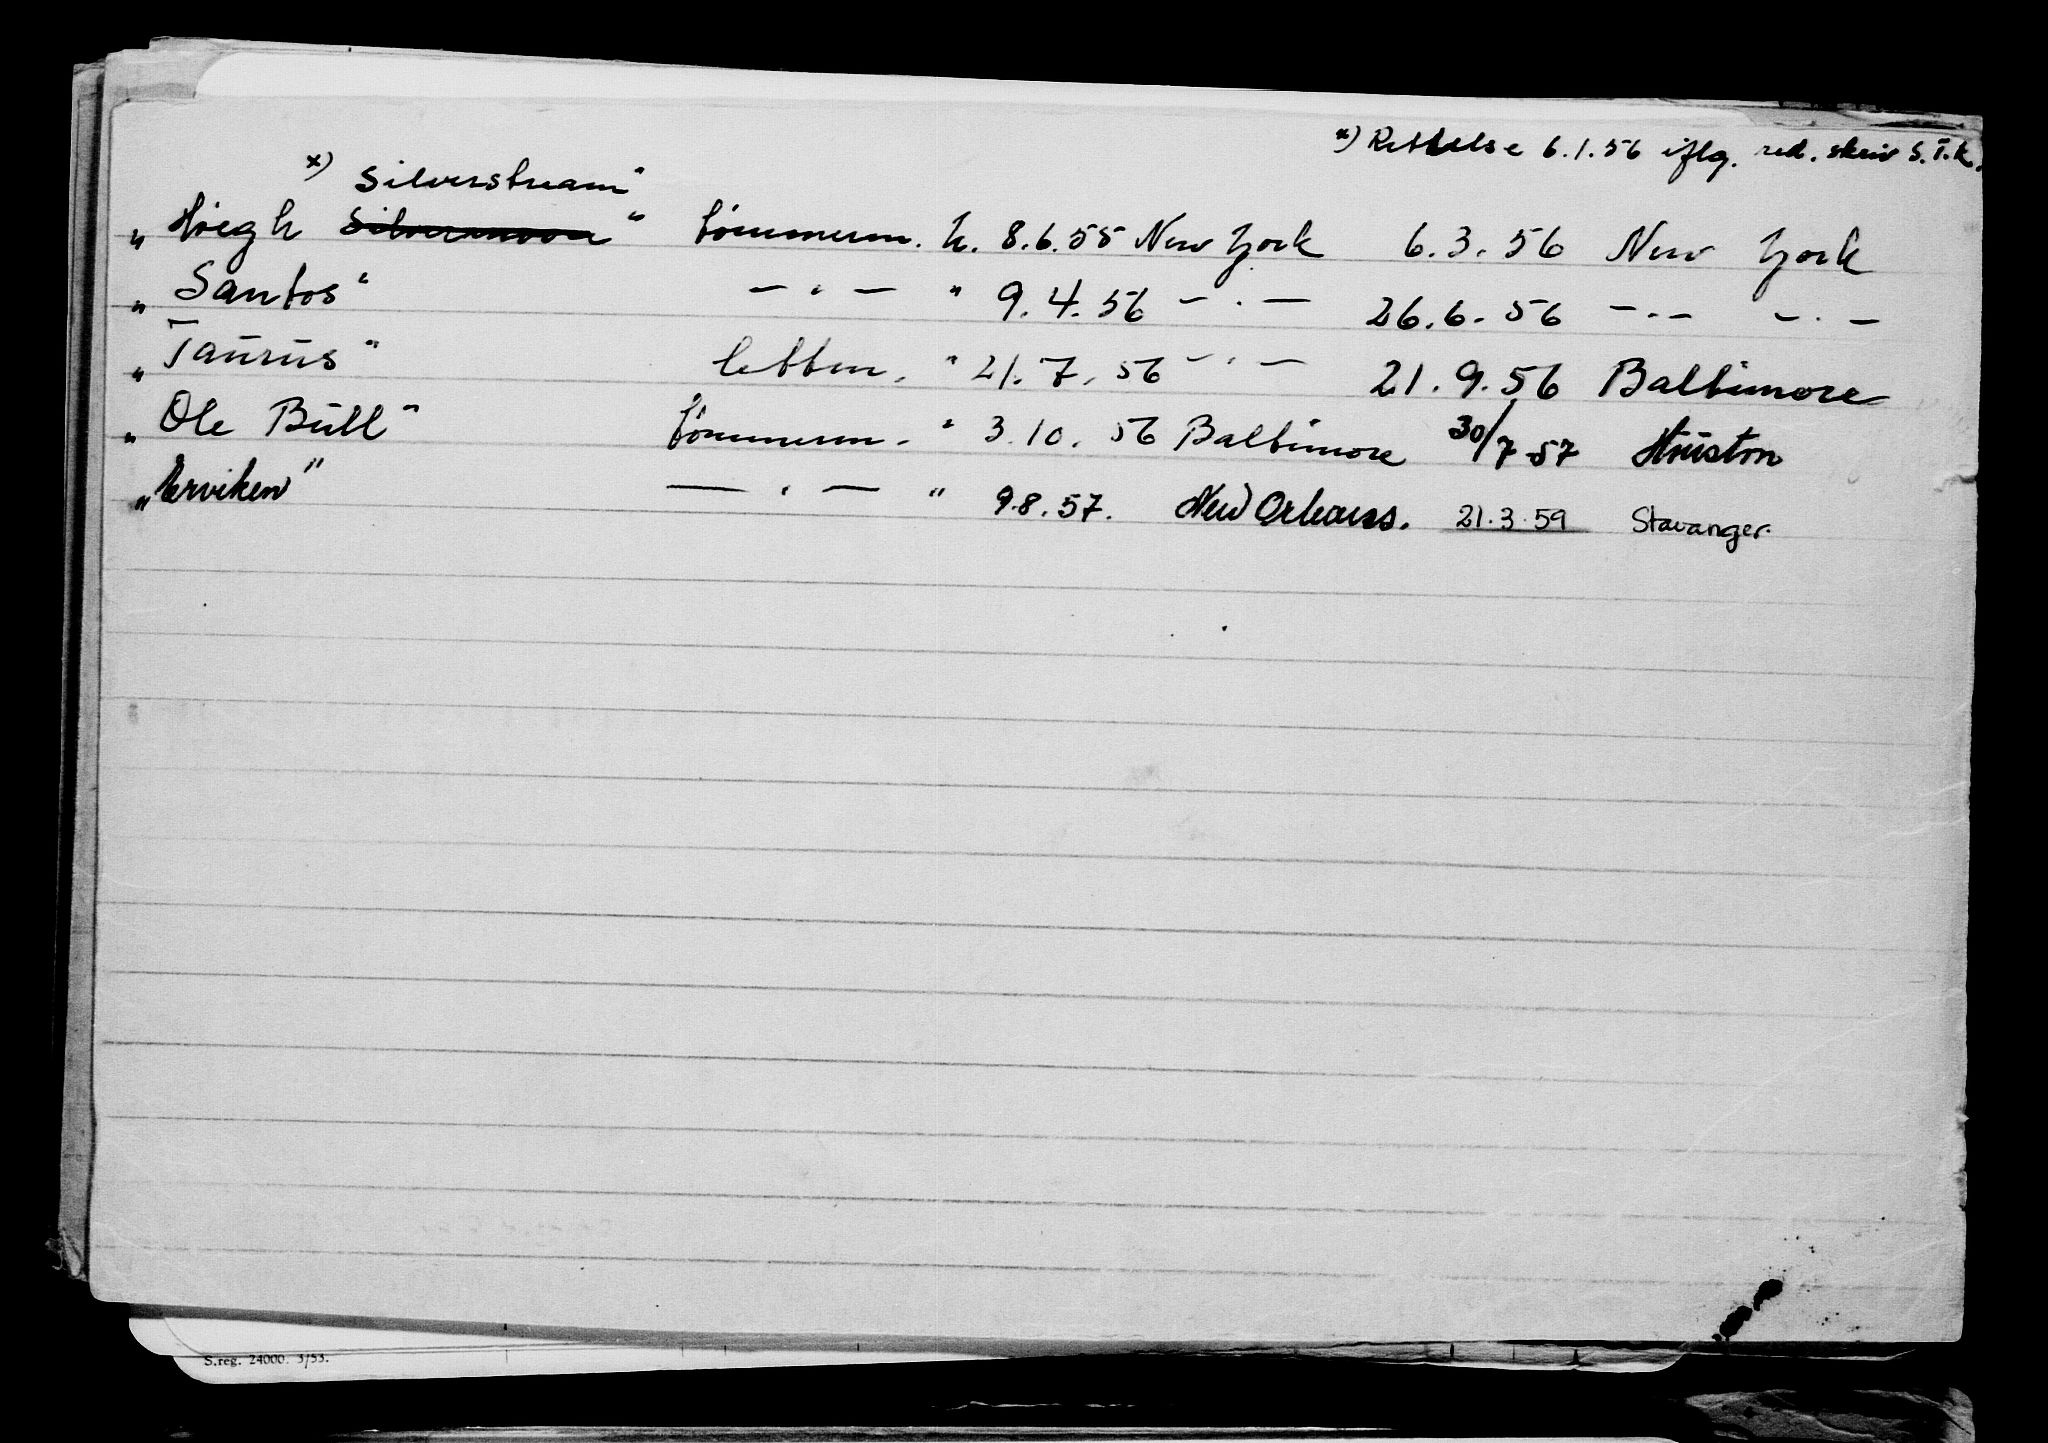 x) Rettelse 6.1.56 iflg. red. skriv S.T.K.
x) Silverstream"
„Höegh Silvermoon" tömmerm. h. 8.6.55 New York 6.3.56 New York
„Santos" — " — " 9.4.56 — " — 26.6.56 — " — — " —
„Taurus" lettm. " 21.7.56 — " — 21.9.56 Baltimore
„Ole Bull" tömmerm. " 3.10.56 Baltimore 30/7-57 Houston
„Erviken" — " — " 9.8.57. New Orleans. 21.3.59 Stavanger.
S.reg. 24000. 3/53.